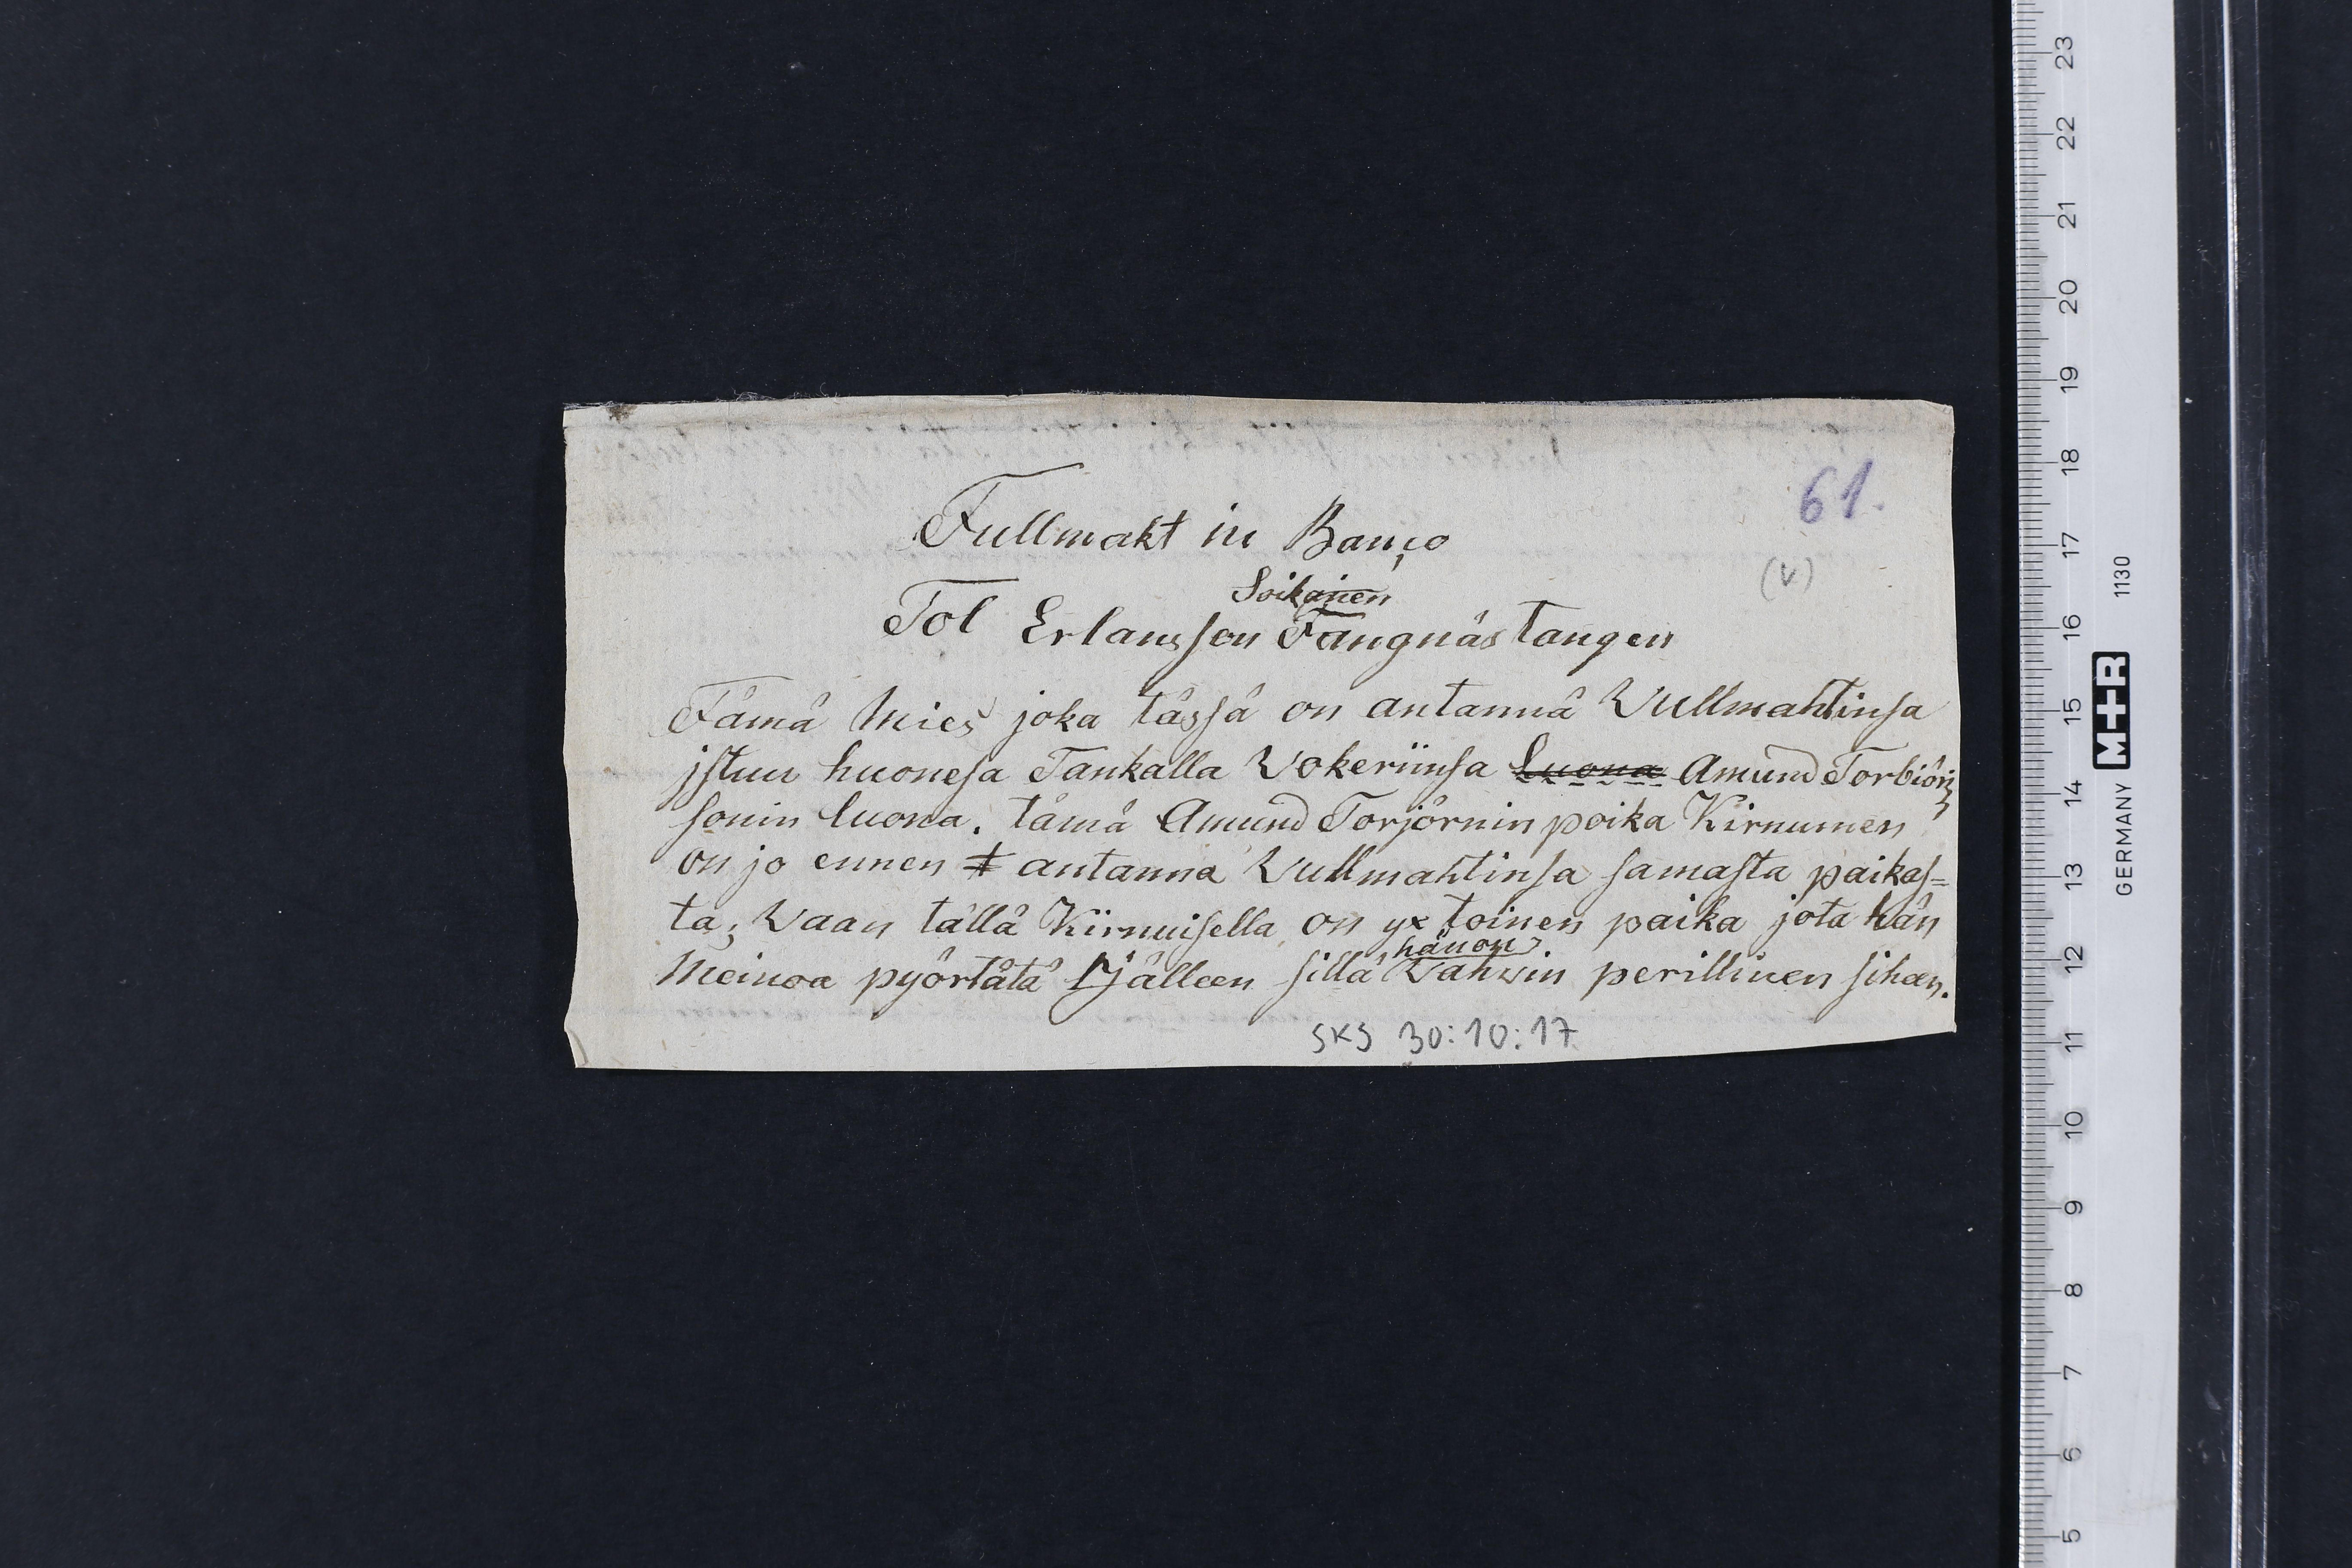 61.
Fullmakt in Banco
(v)
Soikainen
Tol Erlansson Fangnästangen
Tämä Mies joka tässä on antannä Vullmahtinsa
jstuu huonesa Tankalla Vokeriinsa Luona Amund Torbiörn
sonin luona. tämä Amund Torjörnin poika Kirnumen
on jo ennen ŧ antanna Vullmahtinsa samasta paikas=
ta; Vaan tällä Kiirnuisella on yx toinen paika jota hän
hänon
Meinoa pyörtätä Jälleen sillä Vahwin perillinen sihæn.
SKS 30:10:17
23
22
21
20
19
18
17
16
15
14
13
12
11
10
9
8
7
6
5
GERMANY M+R 1130